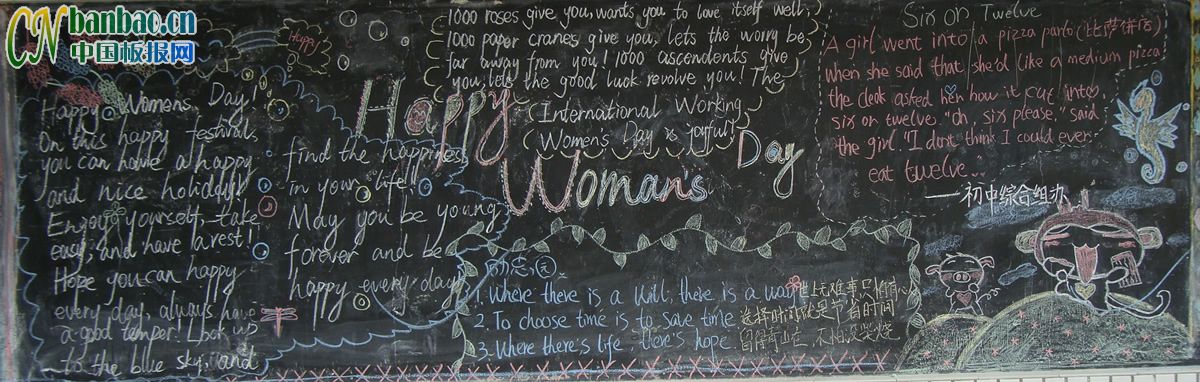 CN banbao.cn
中国板报网
Happy
Happy Womens Day!
On this happy festival,
you can have a happy
and nice holiday!
Enjoy yourself, take
easy, and have a rest!
Hope you can happy
every day, always have
a good temper! Look up
to the blue sky, and
find the happiness
in your life!
May you be young
forever and be
happy every day!
Happy
Woman's
Day
1000 roses give you, wants you to love itself well;
1000 paper cranes give you, lets the worry be
far away from you! 1000 ascendents give
you, lets the good luck revolve you! The
International Working
Women's Day is joyful!
1. Where there is a will, there is a way 世上无难事只怕有心
2. To choose time is to save time 选择时间就是节省时间
3. Where there's life, there's hope. 留得青山在 不怕没柴烧
Six or Twelve
A girl went into a pizza parlo (比萨饼店)
when she said that she'd like a medium pizza
the cleak asked her how it cut into,
six or twelve. "Oh, six please," said
the girl "I dont think I could ever
eat twelve..
——初中综合组办